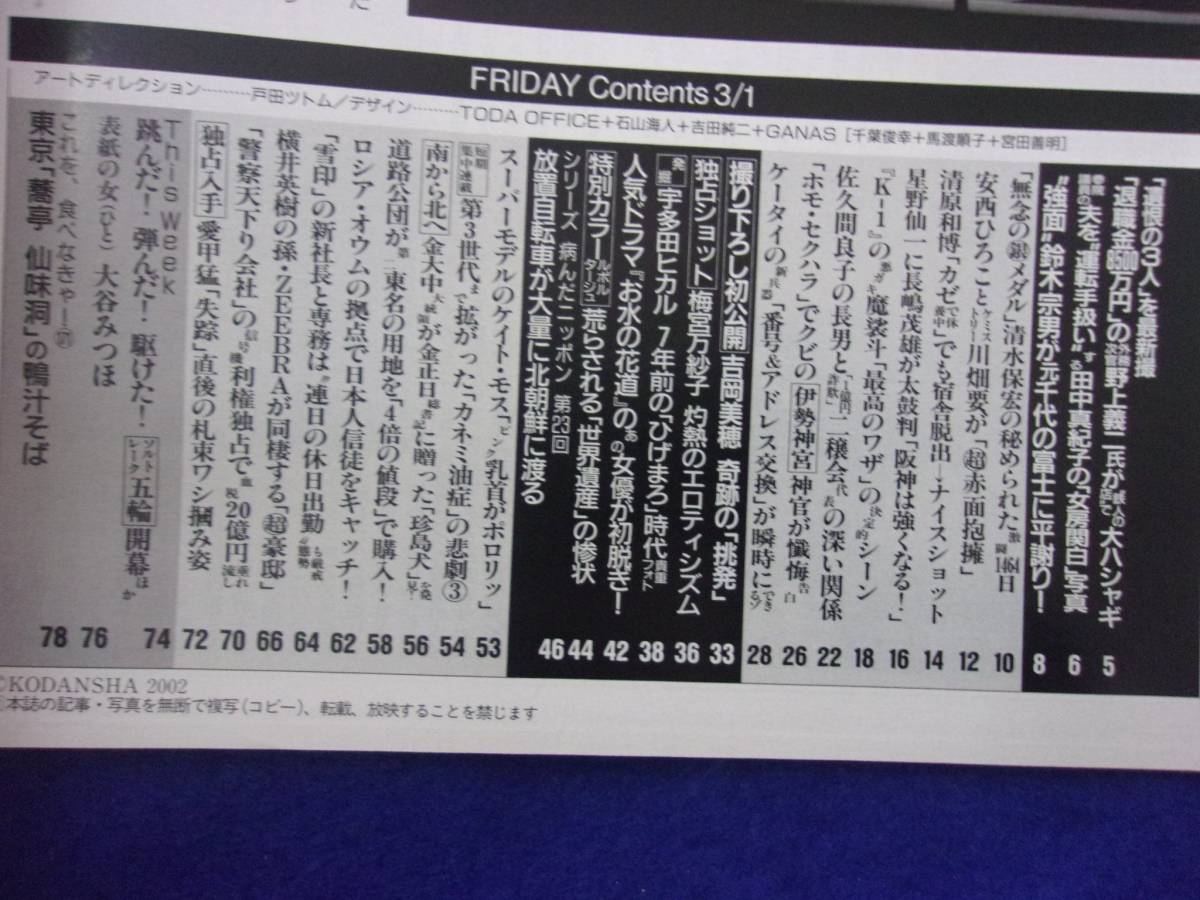 た
FRIDAY Contents 3/1
アートディレクション………戸田ツトム／デザイン………TODA OFFICE＋石山海人＋吉田純二＋GANAS［千葉俊幸＋馬渡順子＋宮田善明］
「遺恨の3人」を最新撮
「退職金8500万円」の 野上義二氏が 大ハシャギ 5
夫を"運転手扱い"する田中真紀子の「女房関白」写真 6
"強面"鈴木宗男が元千代の富士に平謝り！ 8
「無念の㊎メダル」清水保宏の秘められた激闘1464日 10
安西ひろことケミストリー川畑要が「㊣赤面抱擁」 12
清原和博「カゼで休養中」でも宿舎脱出―ナイスショット 14
星野仙一に長嶋茂雄が太鼓判「阪神は強くなる！」 16
『K-1』の悪ガキ魔裟斗「最高のワザ」の決定的シーン 18
佐久間良子の長男と「1億円詐欺」一穣会代表の深い関係 22
「ホモ・セクハラ」でクビの 伊勢神宮 神官が懺悔告白 26
ケータイの新兵器「番号&アドレス交換」が瞬時にできるゾ 28
撮り下ろし初公開 吉岡美穂 奇跡の「挑発」 33
独占ショット 梅宮万紗子 灼熱のエロティシズム 36
発掘 宇多田ヒカル 7年前の「ひげまろ」時代貴重フォト 38
人気ドラマ『お水の花道』のあの女優が初脱ぎ！ 42
特別カラー ルポルタージュ 荒らされる「世界遺産」の惨状 44
シリーズ 病んだニッポン 第23回
放置自転車が大量に北朝鮮に渡る 46
スーパーモデルのケイト・モス「ピンク乳首がポロリッ」 53
短期集中連載 第3世代まで拡がった「カネミ油症」の悲劇③ 54
南から北へ 金大中大統領が金正日総書記に贈った「珍島犬」を発見！ 56
道路公団が第二東名の用地を「4倍の値段」で購入！ 58
ロシア・オウムの拠点で日本人信徒をキャッチ！ 62
「雪印」の新社長と専務は"連日の休日出勤"も厳戒態勢 64
横井英樹の孫・ZEEBRAが同棲する「㊣豪邸」 66
「警察天下り会社」の信号機利権独占で血税20億円垂れ流し 70
独占入手 愛甲猛「失踪」直後の札束ワシ摑み姿 72
This Week
跳んだ！ 弾んだ！ 駆けた！ ソルトレーク五輪開幕ほか 74
表紙の女（ひと） 大谷みつほ 76
これを、食べなきゃー
東京「蕎亭 仙味洞」の鴨汁そば 78
©KODANSHA 2002
本誌の記事・写真を無断で複写（コピー）、転載、放映することを禁じます